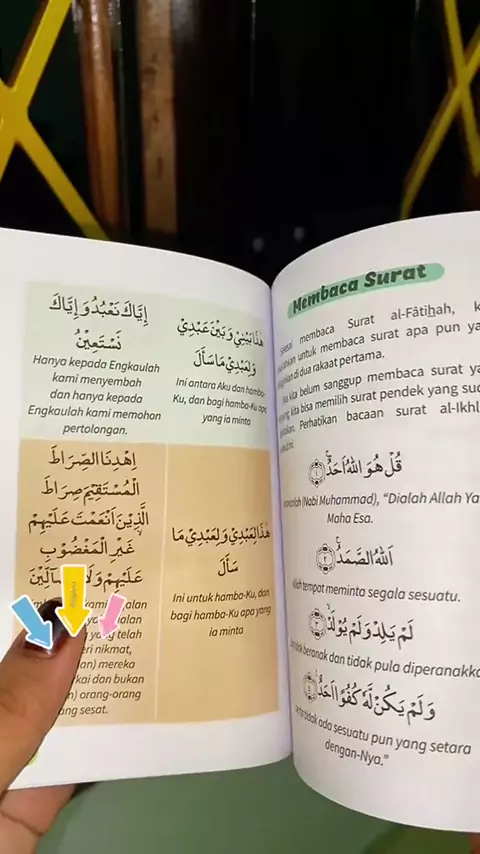 إِيَّاكَ نَعْبُدُ وَإِيَّاكَ
نَسْتَعِيْنُ
Hanya kepada Engkaulah
kami menyembah
dan hanya kepada
Engkaulah kami memohon
pertolongan.
هٰذَا بَيْنِيْ وَبَيْنَ عَبْدِيْ
وَلِعَبْدِيْ مَا سَأَلَ
Ini antara Aku dan hamba-
Ku, dan bagi hamba-Ku apa
yang ia minta
اِهْدِنَا الصِّرَاطَ
الْمُسْتَقِيْمَ صِرَاطَ
الَّذِيْنَ أَنْعَمْتَ عَلَيْهِمْ
غَيْرِ الْمَغْضُوْبِ
عَلَيْهِمْ
kami jalan
jalan
yang telah
nikmat,
mereka
dan bukan
orang-orang
sesat.
هٰذَا لِعَبْدِيْ وَلِعَبْدِيْ مَا
سَأَلَ
Ini untuk hamba-Ku, dan
bagi hamba-Ku apa yang
ia minta
Membaca Surat
membaca Surat al-Fâtihah,
untuk membaca surat apa pun
di dua rakaat pertama.
kita belum sanggup membaca surat
kita bisa memilih surat pendek yang
Perhatikan bacaan surat
قُلْ هُوَ اللّٰهُ أَحَدٌ ۝١
(Nabi Muhammad), “Dialah Allah
Maha Esa.
اَللّٰهُ الصَّمَدُ ۝٢
Allah tempat meminta segala sesuatu.
لَمْ يَلِدْ وَلَمْ يُوْلَدْ ۝٣
beranak dan tidak pula
وَلَمْ يَكُنْ لَّهٗ كُفُوًا أَحَدٌ ۝٤
tidak ada sesuatu pun yang setara
dengan-Nya.”